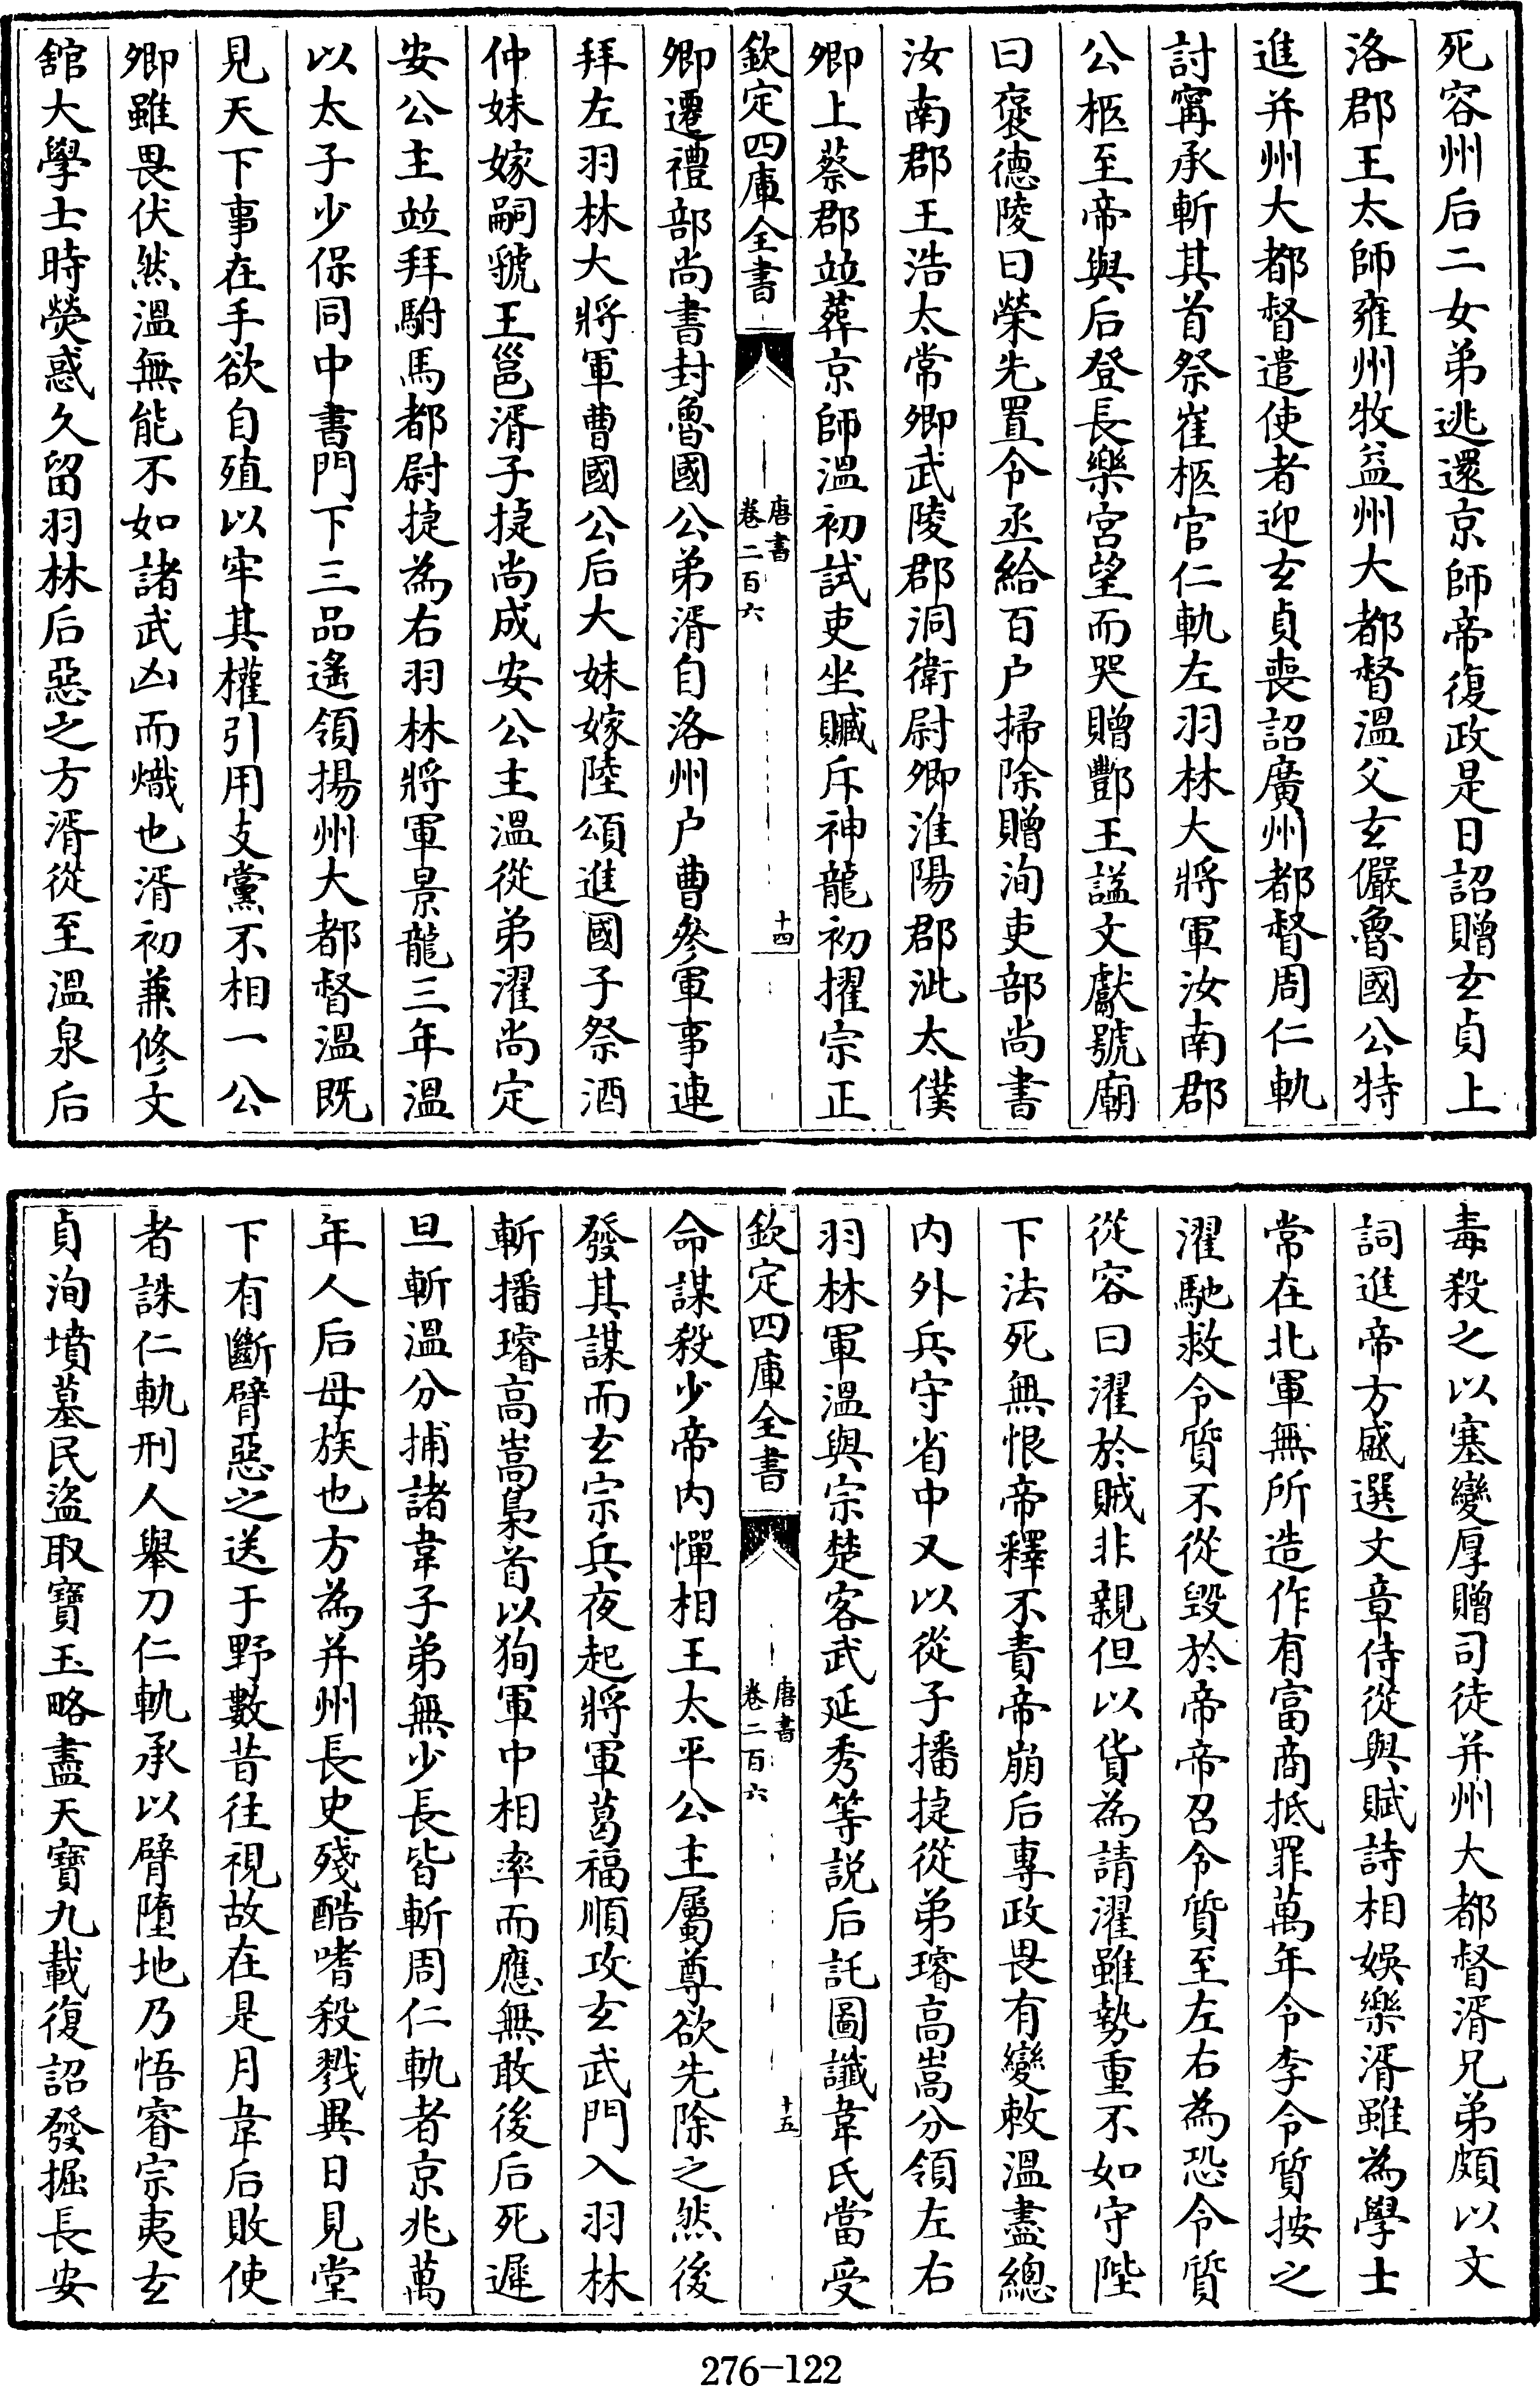 死容州后二女弟逃還京師帝復政是日詔贈玄貞上
洛郡王太師雍州牧益州大都督溫父玄儼魯國公特
進并州大都督遣使者迎玄貞喪詔廣州都督周仁軌
討甯承斬其首祭崔柩官仁軌左羽林大將軍汝南郡
公柩至帝與后登長樂宮望而哭贈酆王諡文獻號廟
曰褒德陵曰榮先置令丞給百户掃除贈洵吏部尚書
汝南郡王浩太常卿武陵郡洞衛尉卿淮陽郡泚太僕
卿上蔡郡並葬京師溫初試吏坐贓斥神龍初擢宗正
欽定四庫全書
唐書
卷二百六
十四
卿遷禮部尚書封魯國公弟湑自洛州户曹參軍事連
拜左羽林大將軍曹國公后大妹嫁陸頌進國子祭酒
仲妹嫁嗣虢王邕湑子捷尚成安公主溫從弟濯尚定
安公主並拜駙馬都尉捷為右羽林將軍景龍三年溫
以太子少保同中書門下三品遙領揚州大都督溫既
見天下事在手欲自殖以牢其權引用支黨不相一公
卿雖畏伏然溫無能不如諸武凶而熾也湑初兼修文
舘大學士時熒惑久留羽林后惡之方湑從至溫泉后
毒殺之以塞變厚贈司徒并州大都督湑兄弟頗以文
詞進帝方盛選文章侍從與賦詩相娛樂湑雖為學士
常在北軍無所造作有富商抵罪萬年令李令質按之
濯馳救令質不從毀於帝帝召令質至左右為恐令質
從容曰濯於賊非親但以貨為請濯雖勢重不如守陛
下法死無恨帝釋不責帝崩后專政畏有變敕溫盡總
内外兵守省中又以從子播捷從弟璿高嵩分領左右
羽林軍溫與宗楚客武延秀等説后託圖讖韋氏當受
欽定四庫全書
唐書
卷二百六
十五
命謀殺少帝内憚相王太平公主屬尊欲先除之然後
發其謀而玄宗兵夜起將軍葛福順攻玄武門入羽林
斬播璿高嵩梟首以狥軍中相率而應無敢後后死遲
旦斬溫分捕諸韋子弟無少長皆斬周仁軌者京兆萬
年人后母族也方為并州長史殘酷嗜殺戮異日見堂
下有斷臂惡之送于野數昔往視故在是月韋后敗使
者誅仁軌刑人舉刀仁軌承以臂墮地乃悟睿宗夷玄
貞洵墳墓民盜取寶玉略盡天寶九載復詔發掘長安
276-122